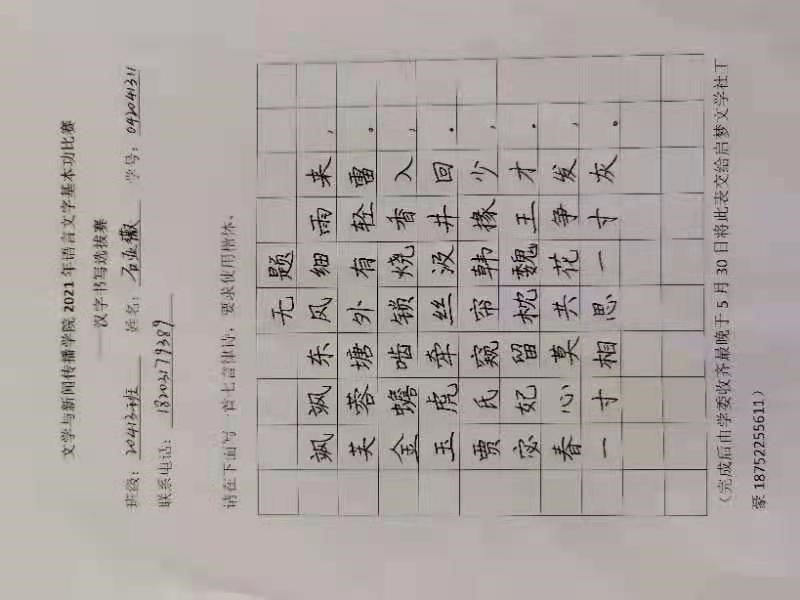 文学与新闻传播学院 2021 年语言文字基本功比赛
——汉字书写选拔赛
班级：20413班 姓名：石业傲 学号：042041311
联系电话：18203179389
请在下面写一首七言律诗，要求使用楷体。
无题
飒飒东风细雨来，
芙蓉塘外有轻雷。
金蟾啮锁烧香入，
玉虎牵丝汲井回。
贾氏窥帘韩掾少，
宓妃留枕魏王才。
春心莫共花争发，
一寸相思一寸灰。
（完成后由学委收齐最晚于 5 月 30 日将此表交给启梦文学社丁
蒙 18752255611）